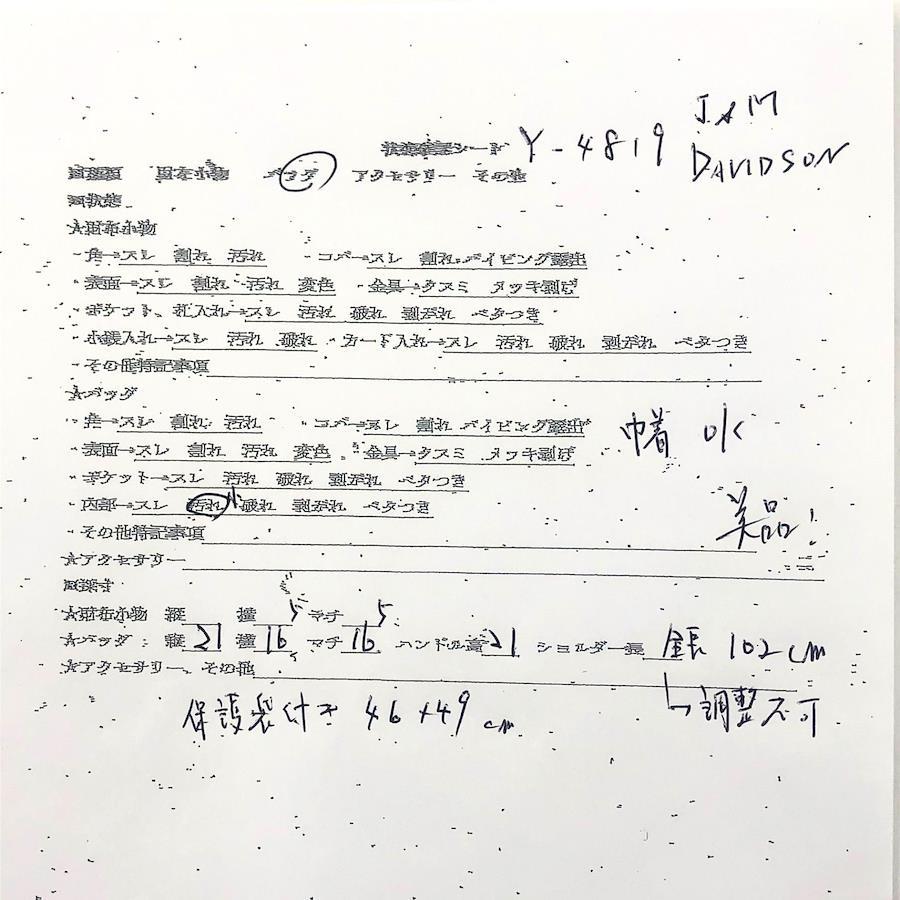 Y-4819 J&M
DAVIDSON
財布小物 バッグ アクセサリー その他
状態
☆財布小物
・角→スレ 割れ 汚れ ・コバ→スレ 割れ パイピング露出
・表面→スレ 割れ 汚れ 変色 ・金具→クスミ メッキ剥げ
・ポケット、札入れ→スレ 汚れ 破れ 剥がれ ベタつき
・小銭入れ→スレ 汚れ 破れ ・カード入れ→スレ 汚れ 破れ 剥がれ ベタつき
・その他特記事項
☆バッグ
・角→スレ 割れ 汚れ ・コバ→スレ 割れ パイピング露出
巾着 OK
・表面→スレ 割れ 汚れ 変色 ・金具→クスミ メッキ剥げ
・ポケット→スレ 汚れ 破れ 剥がれ ベタつき
・内部→スレ 汚れ 小 破れ 剥がれ ベタつき
美品!
・その他特記事項
☆アクセサリー
採寸
☆財布小物 縦 横 マチ
☆バッグ: 縦 21 横 16.5 マチ 16.5 ハンドル高 21 ショルダー長 全長 102cm
☆アクセサリー、その他
調整不可
保護袋付き 46×49cm